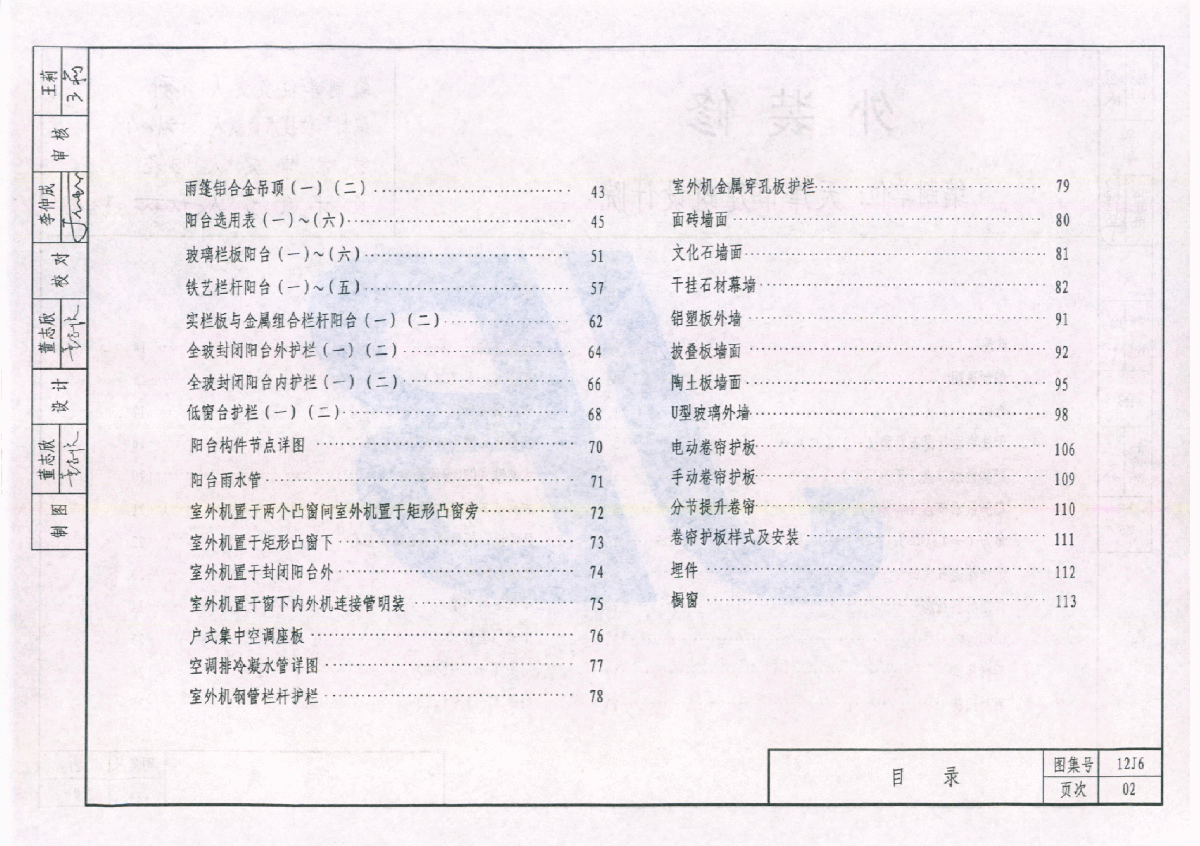 雨篷铝合金吊顶(一)(二) 43
阳台选用表(一)~(六) 45
玻璃栏板阳台(一)~(六) 51
铁艺栏杆阳台(一)~(五) 57
实栏板与金属组合栏杆阳台(一)(二) 62
全玻封闭阳台外护栏(一)(二) 64
全玻封闭阳台内护栏(一)(二) 66
低窗台护栏(一)(二) 68
阳台构件节点详图 70
阳台雨水管 71
室外机置于两个凸窗间室外机置于矩形凸窗旁 72
室外机置于矩形凸窗下 73
室外机置于封闭阳台外 74
室外机置于窗下内外机连接管明装 75
户式集中空调座板 76
空调排冷凝水管详图 77
室外机钢管栏杆护栏 78
室外机金属穿孔板护栏 79
面砖墙面 80
文化石墙面 81
干挂石材幕墙 82
铝塑板外墙 91
披叠板墙面 92
陶土板墙面 95
U型玻璃外墙 98
电动卷帘护板 106
手动卷帘护板 109
分节提升卷帘 110
卷帘护板样式及安装 111
埋件 112
橱窗 113
王莉
审核
李仲成
校对
董志欣
设计
董志欣
制图
目录
图集号 12J6
页次 02